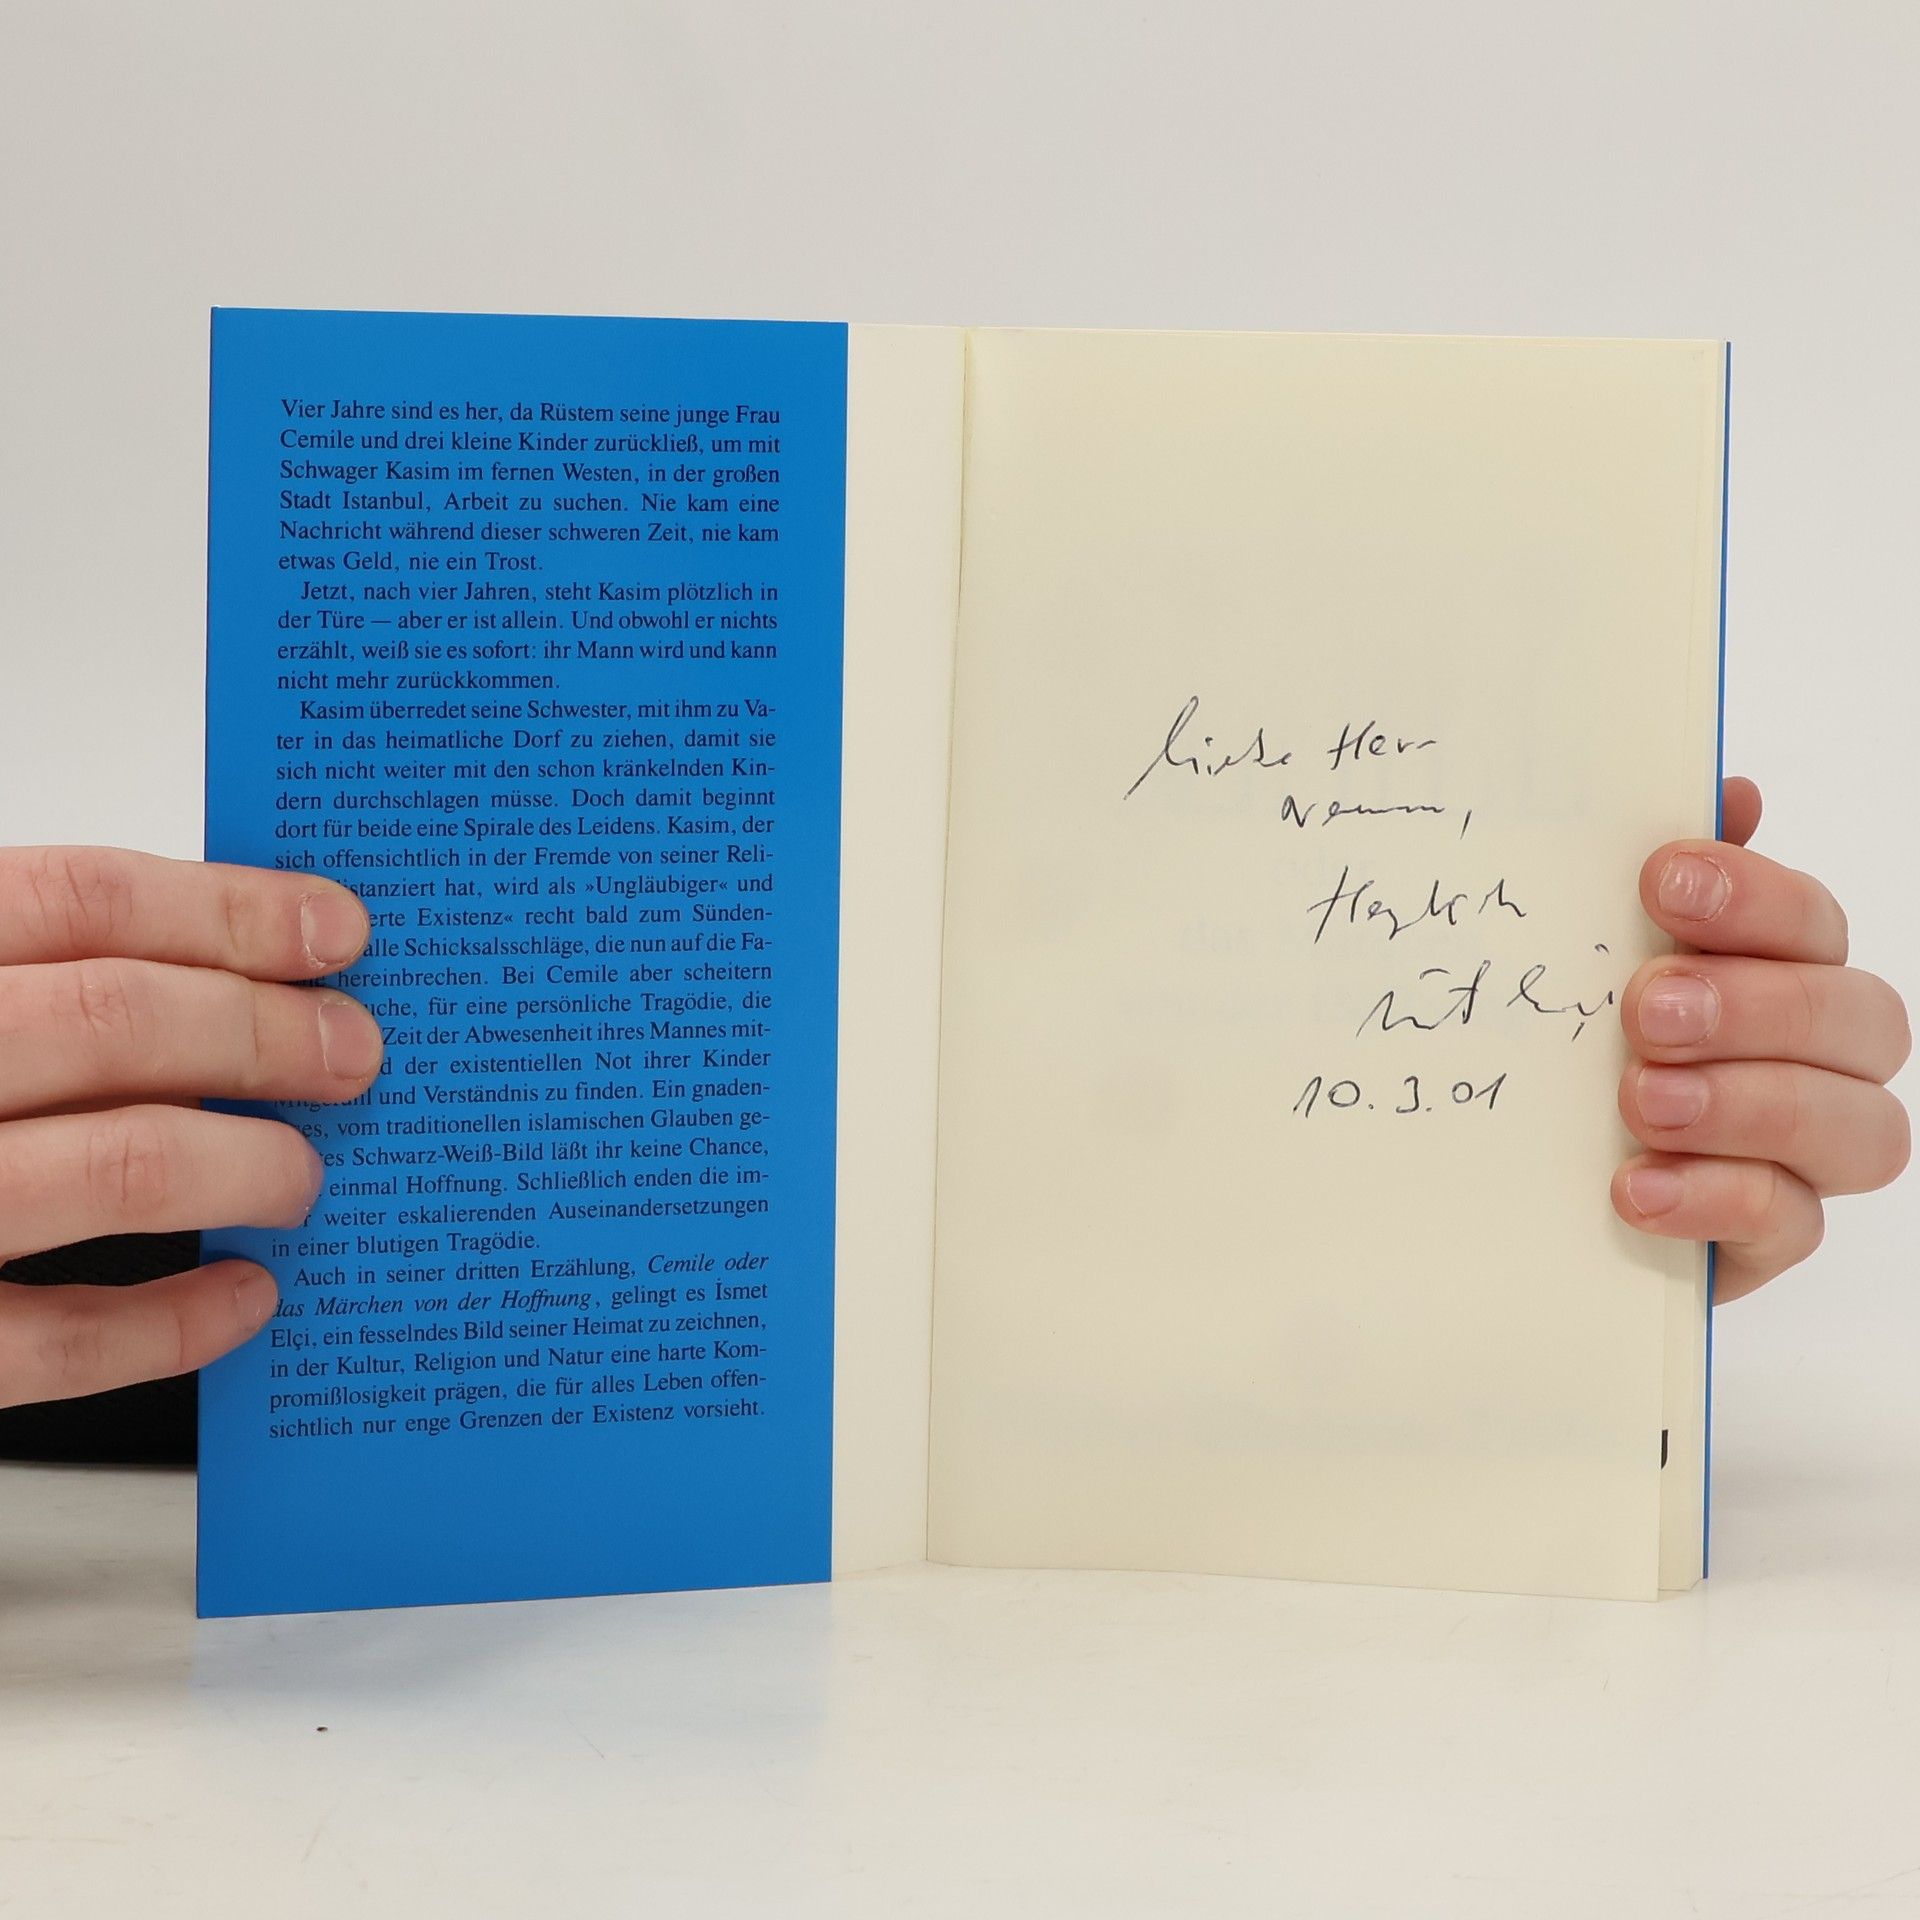 Vier Jahre sind es her, da Rüstem seine junge Frau
Cemile und drei kleine Kinder zurückließ, um mit
Schwager Kasim im fernen Westen, in der großen
Stadt Istanbul, Arbeit zu suchen. Nie kam eine
Nachricht während dieser schweren Zeit, nie kam
etwas Geld, nie ein Trost.
Jetzt, nach vier Jahren, steht Kasim plötzlich in
der Türe — aber er ist allein. Und obwohl er nichts
erzählt, weiß sie es sofort: ihr Mann wird und kann
nicht mehr zurückkommen.
Kasim überredet seine Schwester, mit ihm zu Va-
ter in das heimatliche Dorf zu ziehen, damit sie
sich nicht weiter mit den schon kränkelnden Kin-
dern durchschlagen müsse. Doch damit beginnt
dort für beide eine Spirale des Leidens. Kasim, der
sich offensichtlich in der Fremde von seiner Reli-
istanziert hat, wird als »Ungläubiger« und
erte Existenz« recht bald zum Sünden-
alle Schicksalsschläge, die nun auf die Fa-
hereinbrechen. Bei Cemile aber scheitern
uche, für eine persönliche Tragödie, die
Zeit der Abwesenheit ihres Mannes mit-
d der existentiellen Not ihrer Kinder
und Verständnis zu finden. Ein gnaden-
es, vom traditionellen islamischen Glauben ge-
tes Schwarz-Weiß-Bild läßt ihr keine Chance,
einmal Hoffnung. Schließlich enden die im-
r weiter eskalierenden Auseinandersetzungen
in einer blutigen Tragödie.
Auch in seiner dritten Erzählung, Cemile oder
das Märchen von der Hoffnung, gelingt es İsmet
Elçi, ein fesselndes Bild seiner Heimat zu zeichnen,
in der Kultur, Religion und Natur eine harte Kom-
promißlosigkeit prägen, die für alles Leben offen-
sichtlich nur enge Grenzen der Existenz vorsieht.
Herr
Herzlich
10.3.01